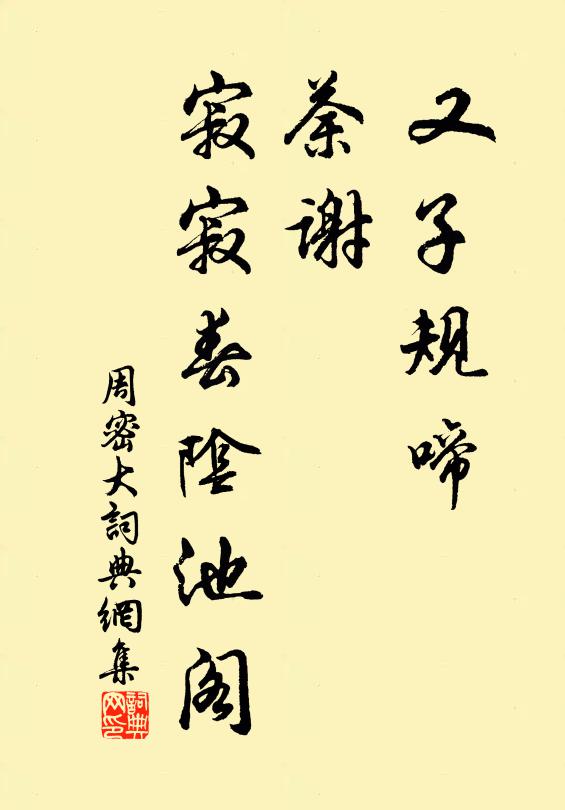 又子規啼
荼謝
寂寂春陰池阁
周密大詞典網集
詞典網印